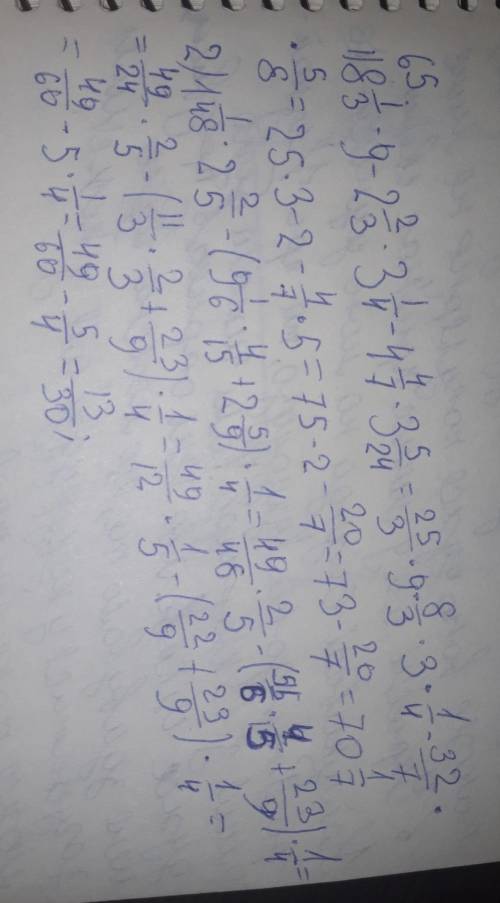 65.
1) 8 1/3 · 9 - 2 2/3 · 3 1/4 - 4 4/7 · 3 5/24 = 25/3 · 9 - 8/3 · 3 · 1/4 - 32/7 ·
· 5/8 = 25 · 3 - 2 - 4/7 · 5 = 75 - 2 - 20/7 = 73 - 20/7 = 70 1/7
2) 1 1/48 · 2 2/5 - (9 1/6 · 4/15 + 2 5/9) · 1/4 = 49/48 · 2/5 - (56/6 · 4/15 + 23/9) · 1/4 =
= 49/24 · 2/5 - (11/3 · 2/3 + 23/9) · 1/4 = 49/12 · 1/5 - (22/9 + 23/9) · 1/4 =
= 49/60 - 5 · 1/4 = 49/60 - 5/4 = 13/30;